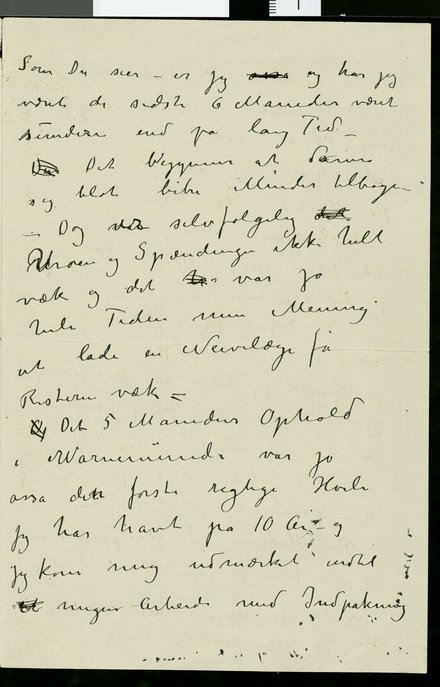 Som Du sier – er jeg og har jeg
været de sidste 6 Maneder været
sundere end på lang Tid –
Det begynner at danne
sig blot bitre Minder tilbage –
– Dog var selvfølgelig
Uroen og Spændingen ikke helt
væk og det var jo
hele Tiden min Mening
at lade en Nervelæge få
Resterne væk –
Det 5 Maneders Ophold
i Warnemünde var jo
ossa den første rigtige Hvile
jeg har havt på 10 År – og
jeg kom mig udmærket indtil
Arbeide med Indpakning